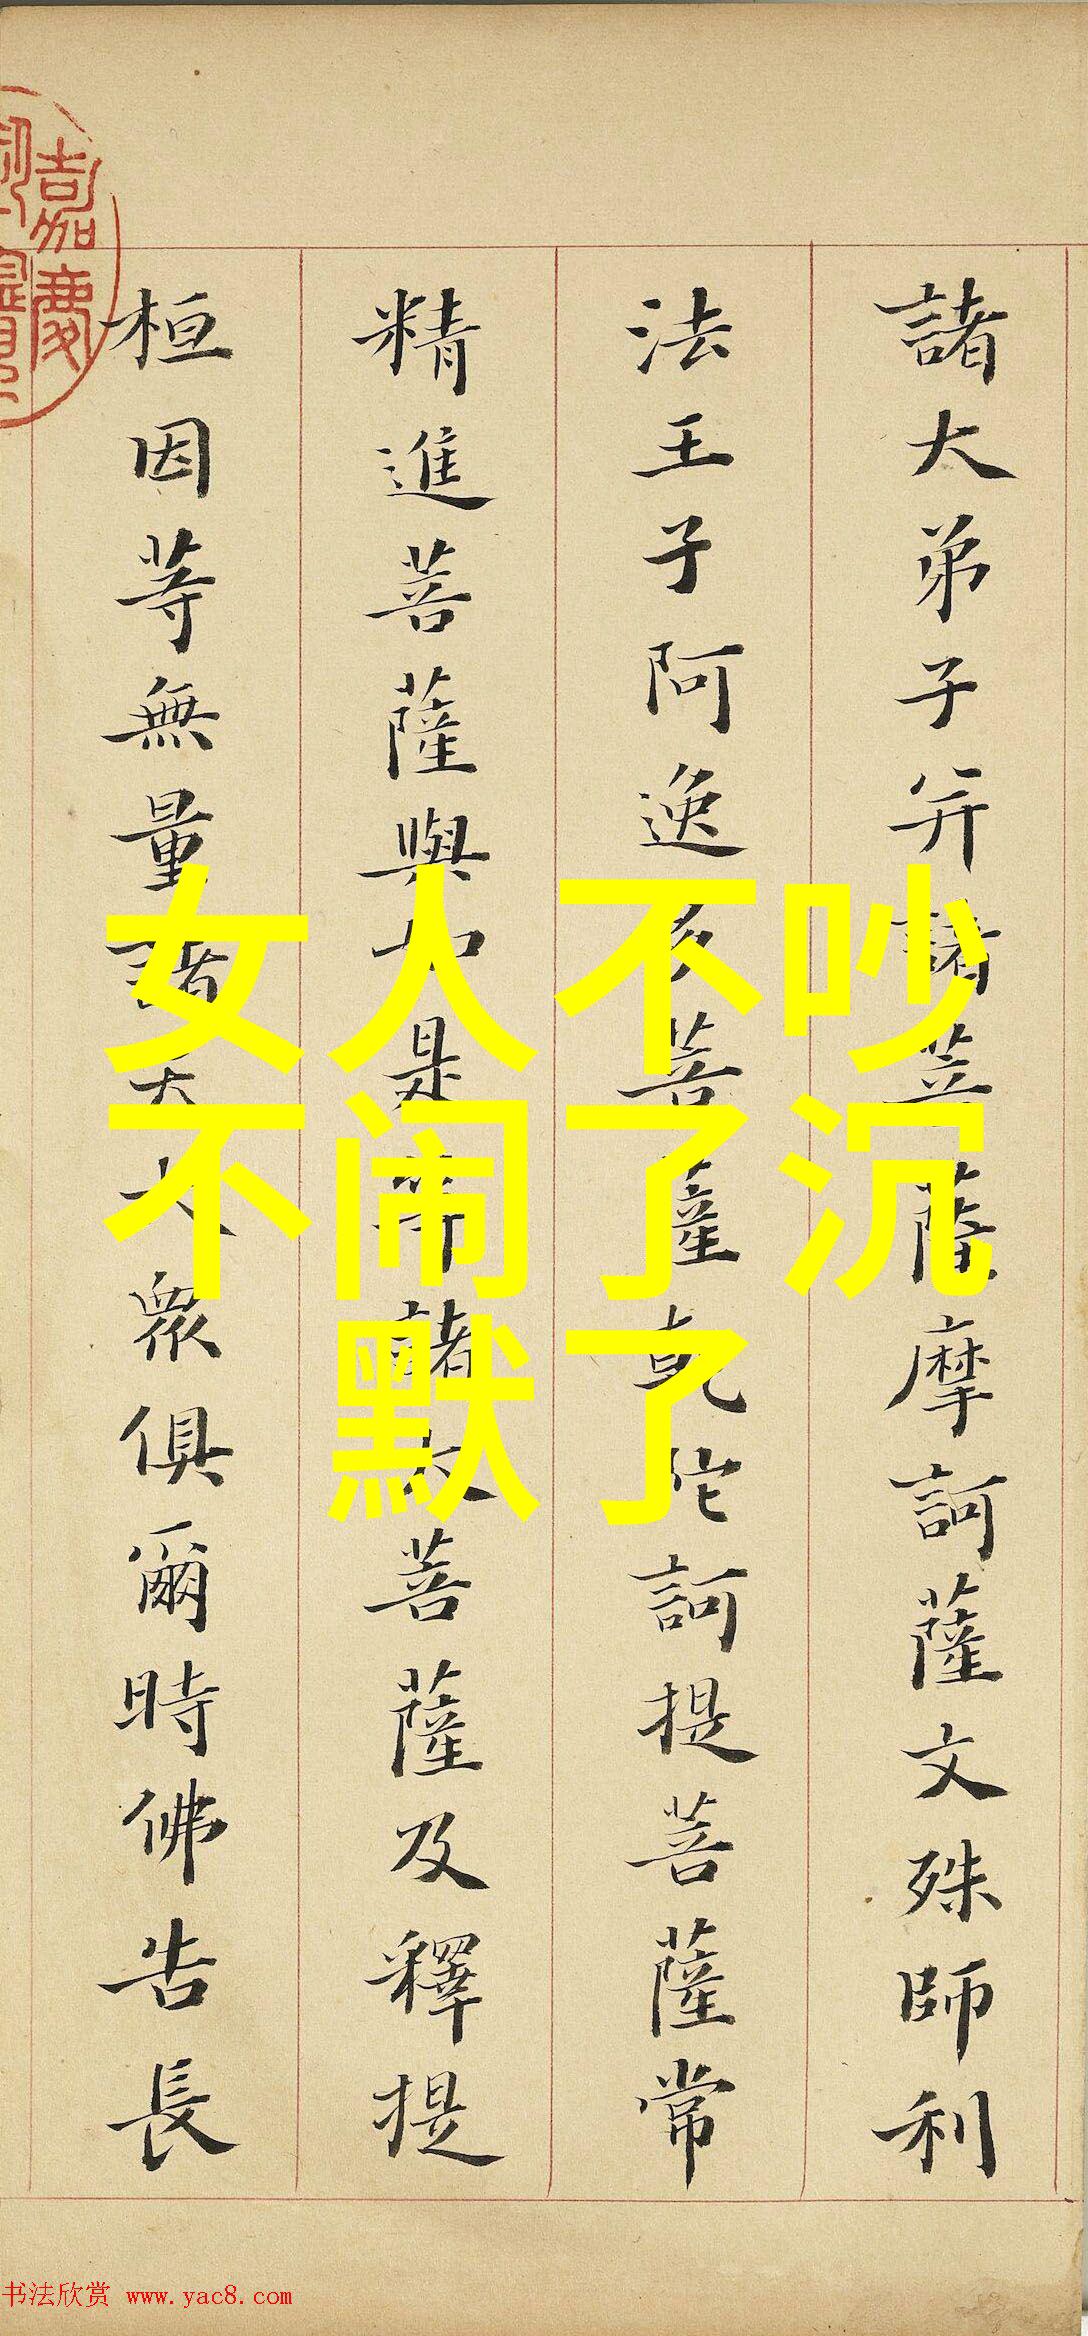 諸大弟子并諸菩薩摩訶薩文殊師利
法王子阿逸多菩薩乾陀訶提菩薩常
精進菩薩與如是等諸大菩薩及釋提
桓因等無量諸天大眾俱爾時佛告長
嘉慶
女人不吵
不闹了沉
默了
书法欣赏 www.yac8.com